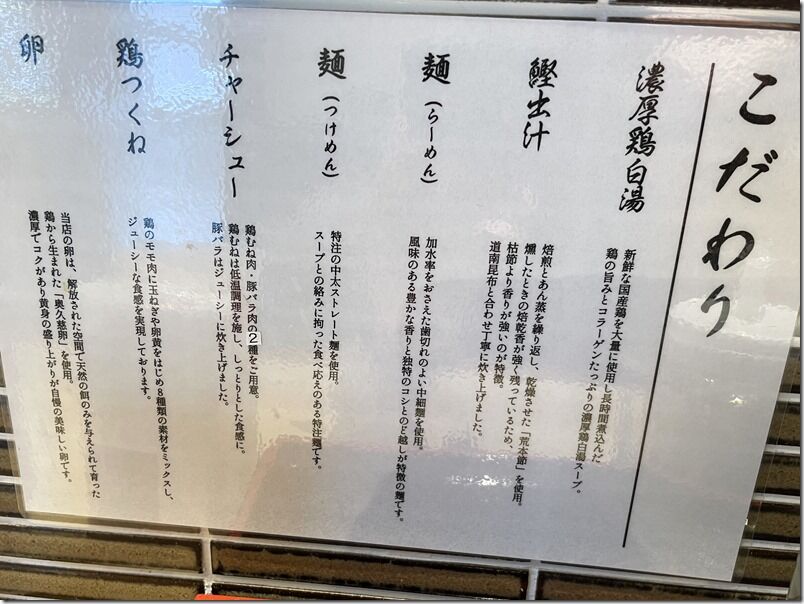 こだわり
濃厚鶏白湯
新鮮な国産鶏を大量に使用し長時間煮込んだ
鶏の旨みとコラーゲンたっぷりの濃厚鶏白湯スープ。
鰹出汁
焙煎とあん蒸を繰り返し、乾燥させた「荒本節」を使用。
燻したときの焙乾香が強く残っているため、
枯節より香りが強いのが特徴。
道南昆布と合わせ丁寧に炊き上げました。
麺(らーめん)
加水率をおさえた歯切れのよい中細麺を使用。
風味のある豊かな香りと独特のコシとのど越しが特徴の麺です。
麺(つけめん)
特注の中太ストレート麺を使用。
スープとの絡みに拘った食べ応えのある特注麺です。
チャーシュー
鶏むね肉・豚バラ肉の2種をご用意。
鶏むねは低温調理を施し、しっとりとした食感に。
豚バラはジューシーに炊き上げました。
鶏つくね
鶏のモモ肉に玉ねぎや卵黄をはじめ8種類の素材をミックスし、
ジューシーな食感を実現しております。
卵
当店の卵は、解放された空間で天然の餌のみを与えられて育った
鶏から生まれた「奥久慈卵」を使用。
濃厚でコクがあり黄身の盛り上がりが自慢の美味しい卵です。